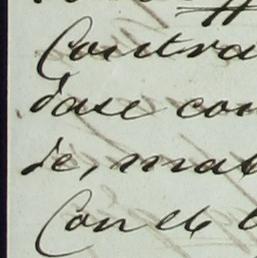 Contra
dase con
de, mat
Con el